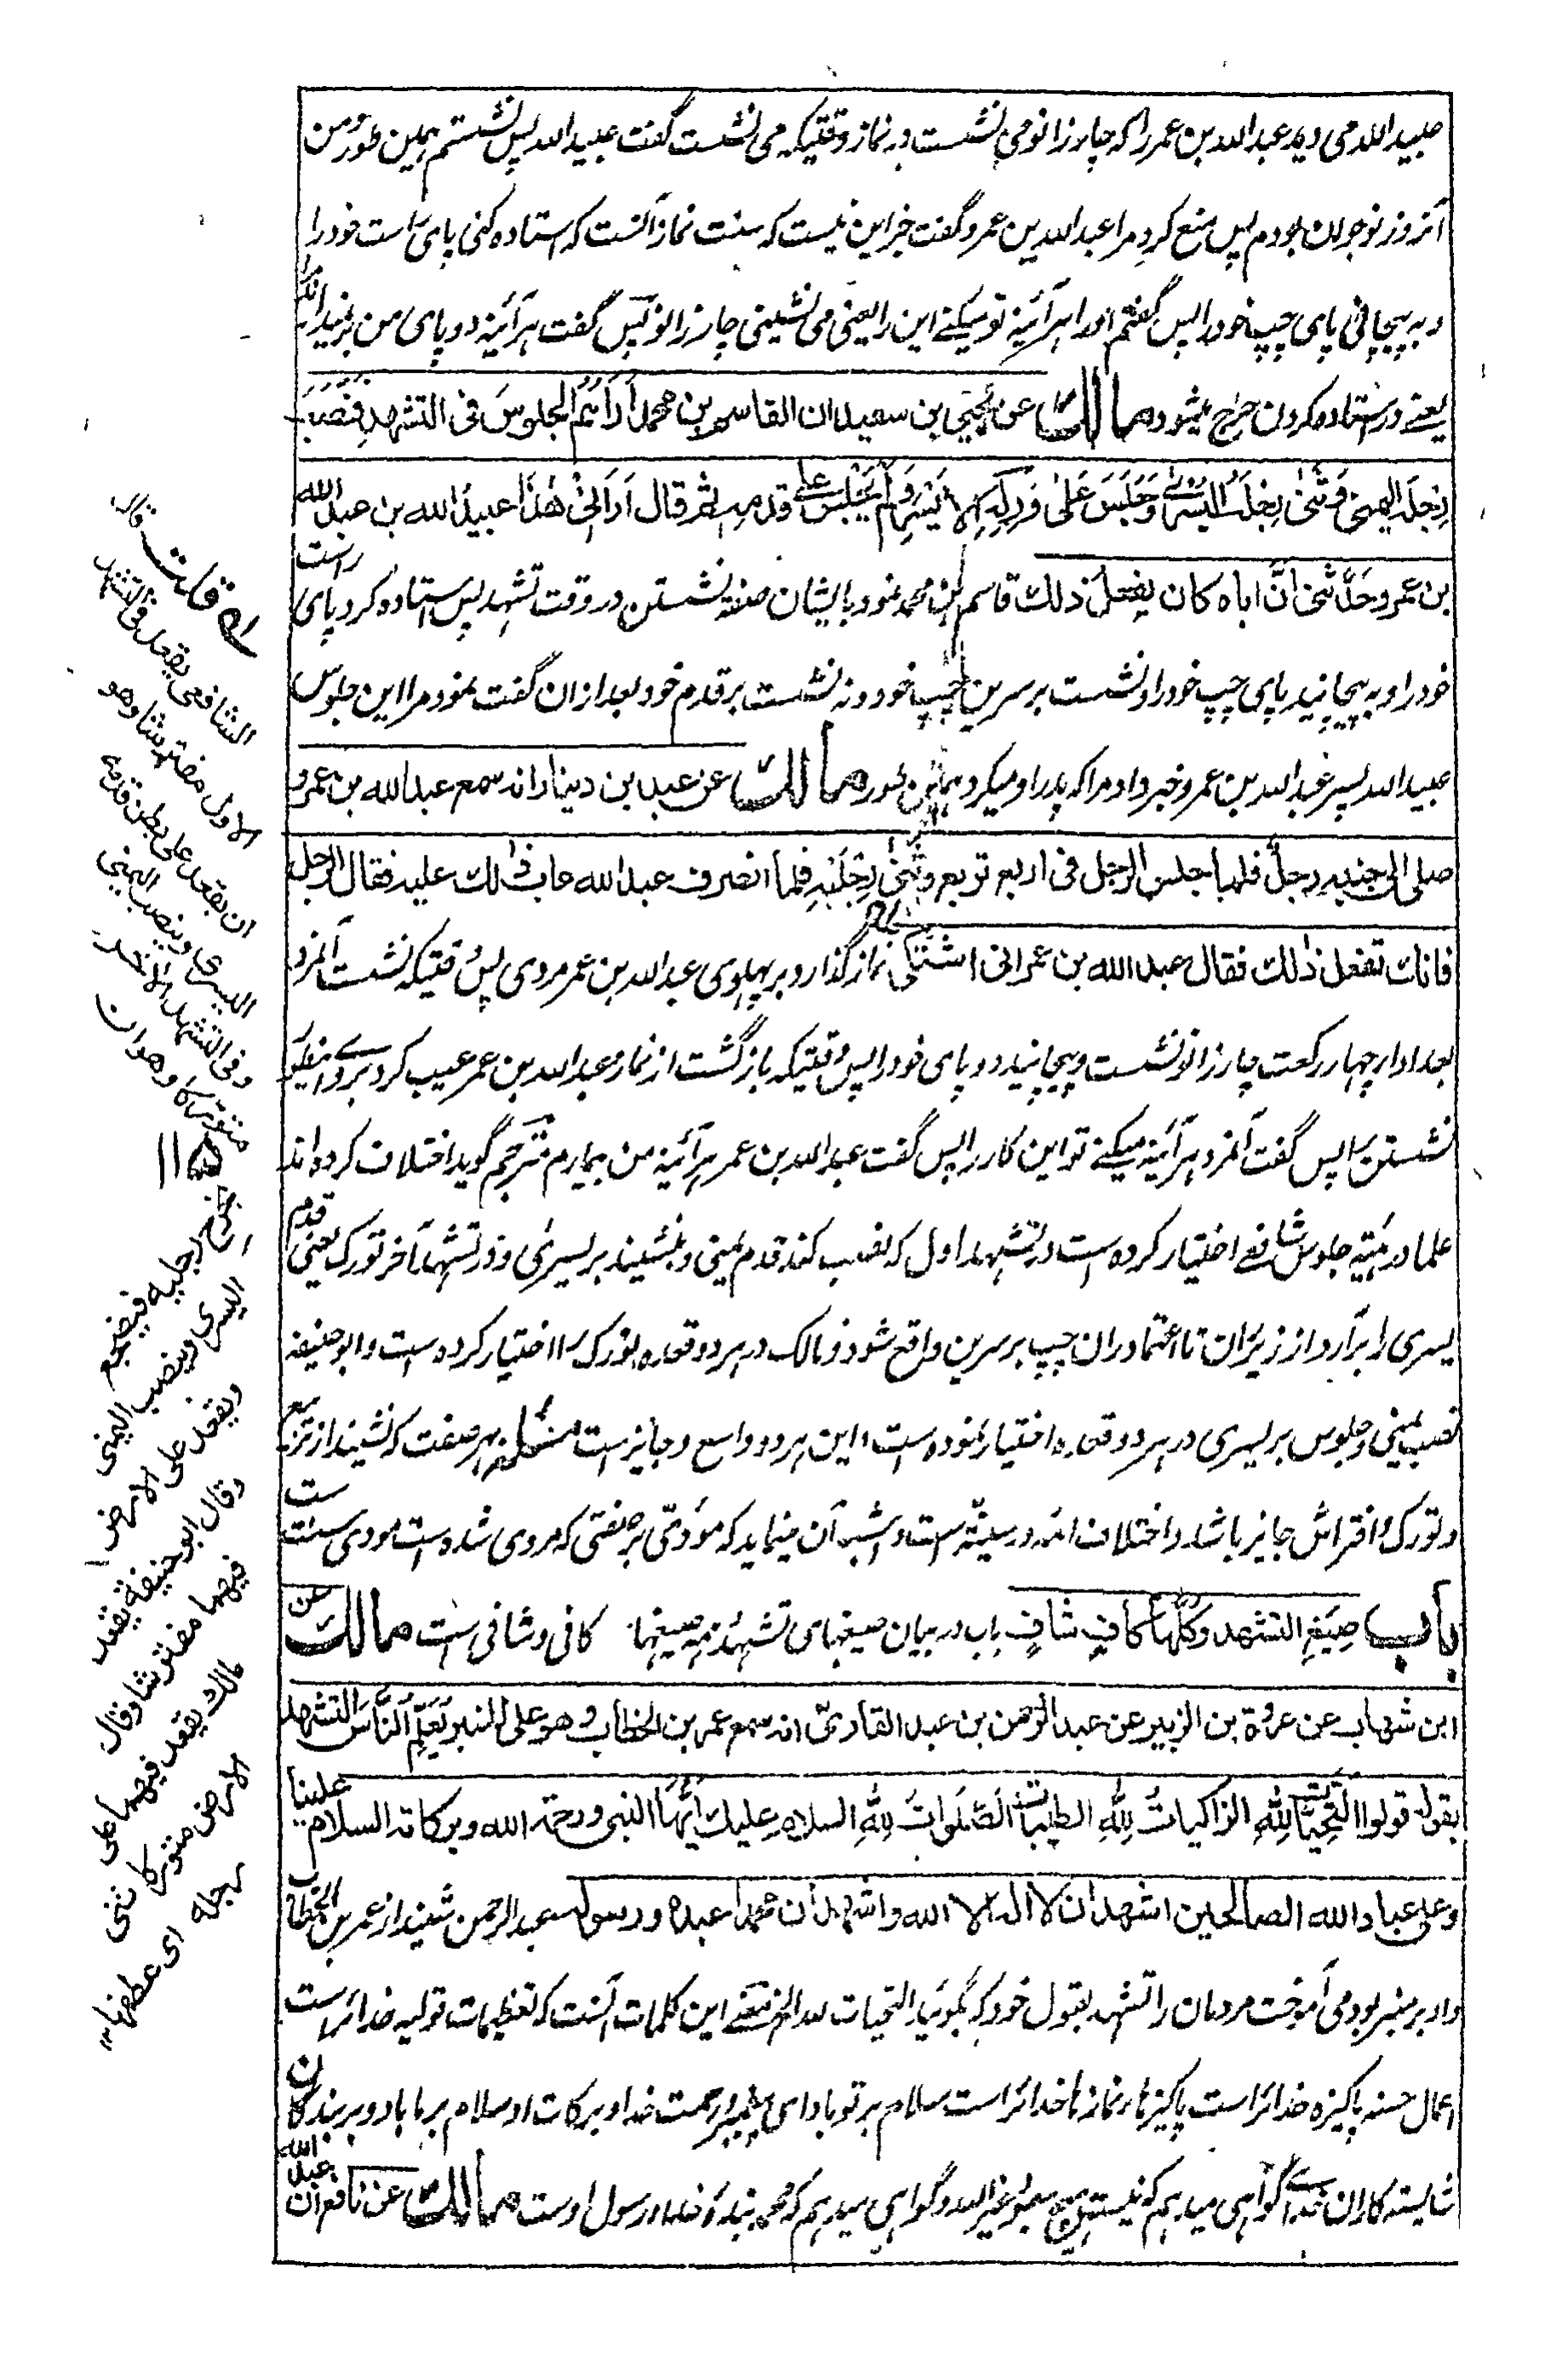 عبیدالله می دید عبدالله بن عمر را که چار زانو می نشست در نماز وقتیکه می نشست گفت عبیدالله پس نشستم همین طور و من
آنروز نوجوان بودم پس منع کرد مرا عبدالله بن عمر و گفت جز این نیست که سنت نماز آنست که استاده کنی پای راست خود را
و به پیچانی پای چپ خود را پس گفتم او را هر آئینه تو میکنی این را یعنی می نشینی چار زانو پس گفت هر آئینه دو پای من بر نمیدارند مرا
یعنے در استاده کردن حرج میشود مالك عن يحيى بن سعيد ان القاسم بن محمد أراهم الجلوس فى التشهد فنصب
رجله اليمنى وثنى رجله اليسرى وجلس على وركه الايسر ولم يجلس على قدمه ثم قال ارانى هذا عبيد الله بن عبد الله
بن عمر وحدثنى ان اباه كان يفعل ذلك قاسم بن محمد نمود بایشان صفة نشستن در وقت تشهد پس استاده کرد پای راست
خود را و به پیچانید پای چپ خود را و نشست بر سرین چپ خود و نه نشست بر قدم خود بعد ازان گفت نمود مرا این جلوس
عبیدالله پسر عبدالله بن عمر و خبر داد مرا که پدر او میکرد همین طور مالك عن عبد بن دينار انه سمع عبد الله بن عمر و
صلى الى جنبه رجل فلما جلس الرجل فى اربع تربع وثنى رجليه فلما انصرف عبد الله عاب ذلك عليه فقال الرجل
فانك تفعل ذلك فقال عبد الله بن عمر انى اشتكى نماز گذارد بر پهلوی عبدالله بن عمر مردی پس وقتیکه نشست آنمرد
بعد ادای چهار رکعت چار زانو نشست و پیچانید دو پای خود را پس وقتیکه بازگشت از نماز عبدالله بن عمر عیب کرد بروے اینطور
نشستن را پس گفت آنمرد هر آئینه میکنے تو این کار را پس گفت عبدالله بن عمر هر آئینه من بیمارم مترجم گوید اختلاف کرده اند
علما در هیئة جلوس شافعے اختیار کرده است در تشهد اول که نصب کند قدم یمنی و بنشیند بر یسری و در تشهد آخر تورک یعنی قدم
یسری را برآرد از زیر ران تا اعتماد ران چپ بر سرین واقع شود و مالک در هر دو قعده تورک را اختیار کرده است و ابو حنیفه
نصب یمنی و جلوس بر یسری در هر دو قعده اختیار نموده است و این هر دو واسع و جایز است مسئله بهر صفت که نشیند از تربع
و تورک و افتراش جایز باشد و اختلاف ائمه در سنیّت است و اشبه آن مینماید که مؤدّی بر صفتی که مروی شده است مودی سنت است
باب صيغ التشهد وكلها كاف شاف باب در بیان صیغهای تشهد و همه صیغها کافی و شافی است مالك عن
ابن شهاب عن عروة بن الزبير عن عبد الرحمن بن عبد القارى انه سمع عمر بن الخطاب وهو على المنبر يعلم الناس التشهد
يقول قولوا التحيات لله الزاكيات لله الطيبات الصلوات لله السلام عليك ايها النبى ورحمة الله وبركاته السلام علينا
وعلى عباد الله الصالحين اشهد ان لا اله الا الله واشهد ان محمدا عبده ورسوله عبد الرحمن شنید از عمر بن الخطاب
و او بر منبر بود می آموخت مردمان را تشهد بقول خود که بگوئید التحیات لله الخ معنے این کلمات آنست که تعظیمات قولیه خدائراست
اعمال حسنه پاکیزه خدائراست پاکیزها و نمازها خدائراست سلام بر تو باد ای پیغمبر و رحمت خدا و برکات او سلام بر ما باد و بر بندگان
شایسته کاران خدای گواهی میدهم که نیست هیچ معبود بغیر الله و گواهی میدهم که محمد بنده خدا و رسول اوست مالك عن نافع ان عبد الله
قلت قال
الشافعى يقعد فى التشهد
الاول مفترشا وهو
ان يقعد على بطن قدمه
اليسرى وينصب اليمنى
وفى التشهد الاخير
متوركا وهو ان
يخرج رجليه فيضجع
اليسرى وينصب اليمنى
ويقعد على الارض
وقال ابو حنيفة يقعد
فيهما مفترشا وقال
مالك يقعد فيهما على
الارض متوركا ثنى
رجله اى عطفها